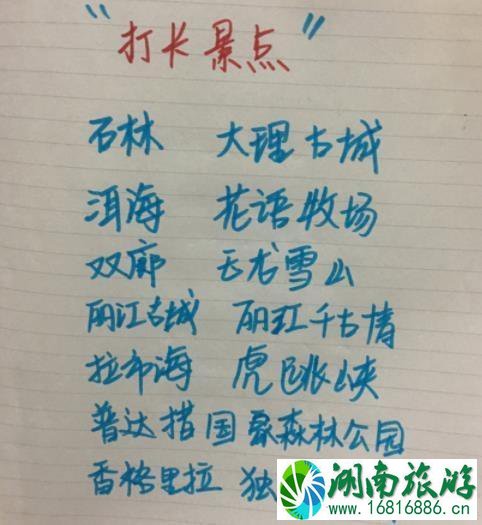 “打长景点”
石林 大理古城
洱海 花语牧场
双廊 玉龙雪山
丽江古城 丽江千古情
拉市海 虎跳峡
普达措国家森林公园
香格里拉 独
湖南旅游
www.16816886.cn